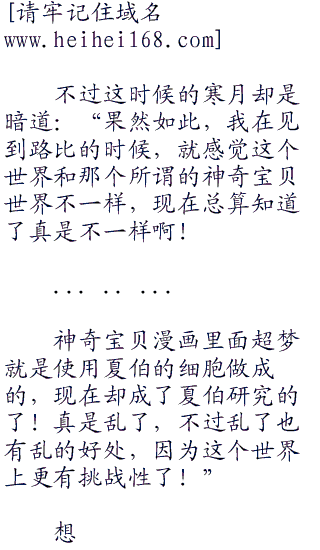 [请牢记住域名
www.heihei168.com]
不过这时候的寒月却是
暗道：“果然如此，我在见
到路比的时候，就感觉这个
世界和那个所谓的神奇宝贝
世界不一样，现在总算知道
了真是不一样啊！
... .. ...
神奇宝贝漫画里面超梦
就是使用夏伯的细胞做成
的，现在却成了夏伯研究的
了！真是乱了，不过乱了也
有乱的好处，因为这个世界
上更有挑战性了！”
想